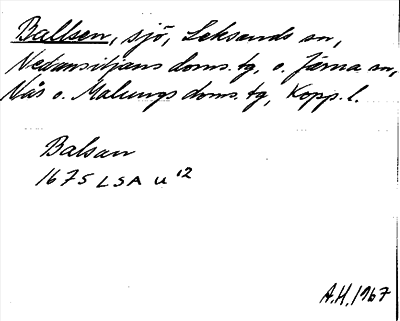 Ballsen, sjö, Leksands sn,
Nedansiljans doms.tg, o. Järna sn,
Nås o. Malungs doms.tg, Kopp. l.
Balsan
1675 LSA U 12
A.H. 1967